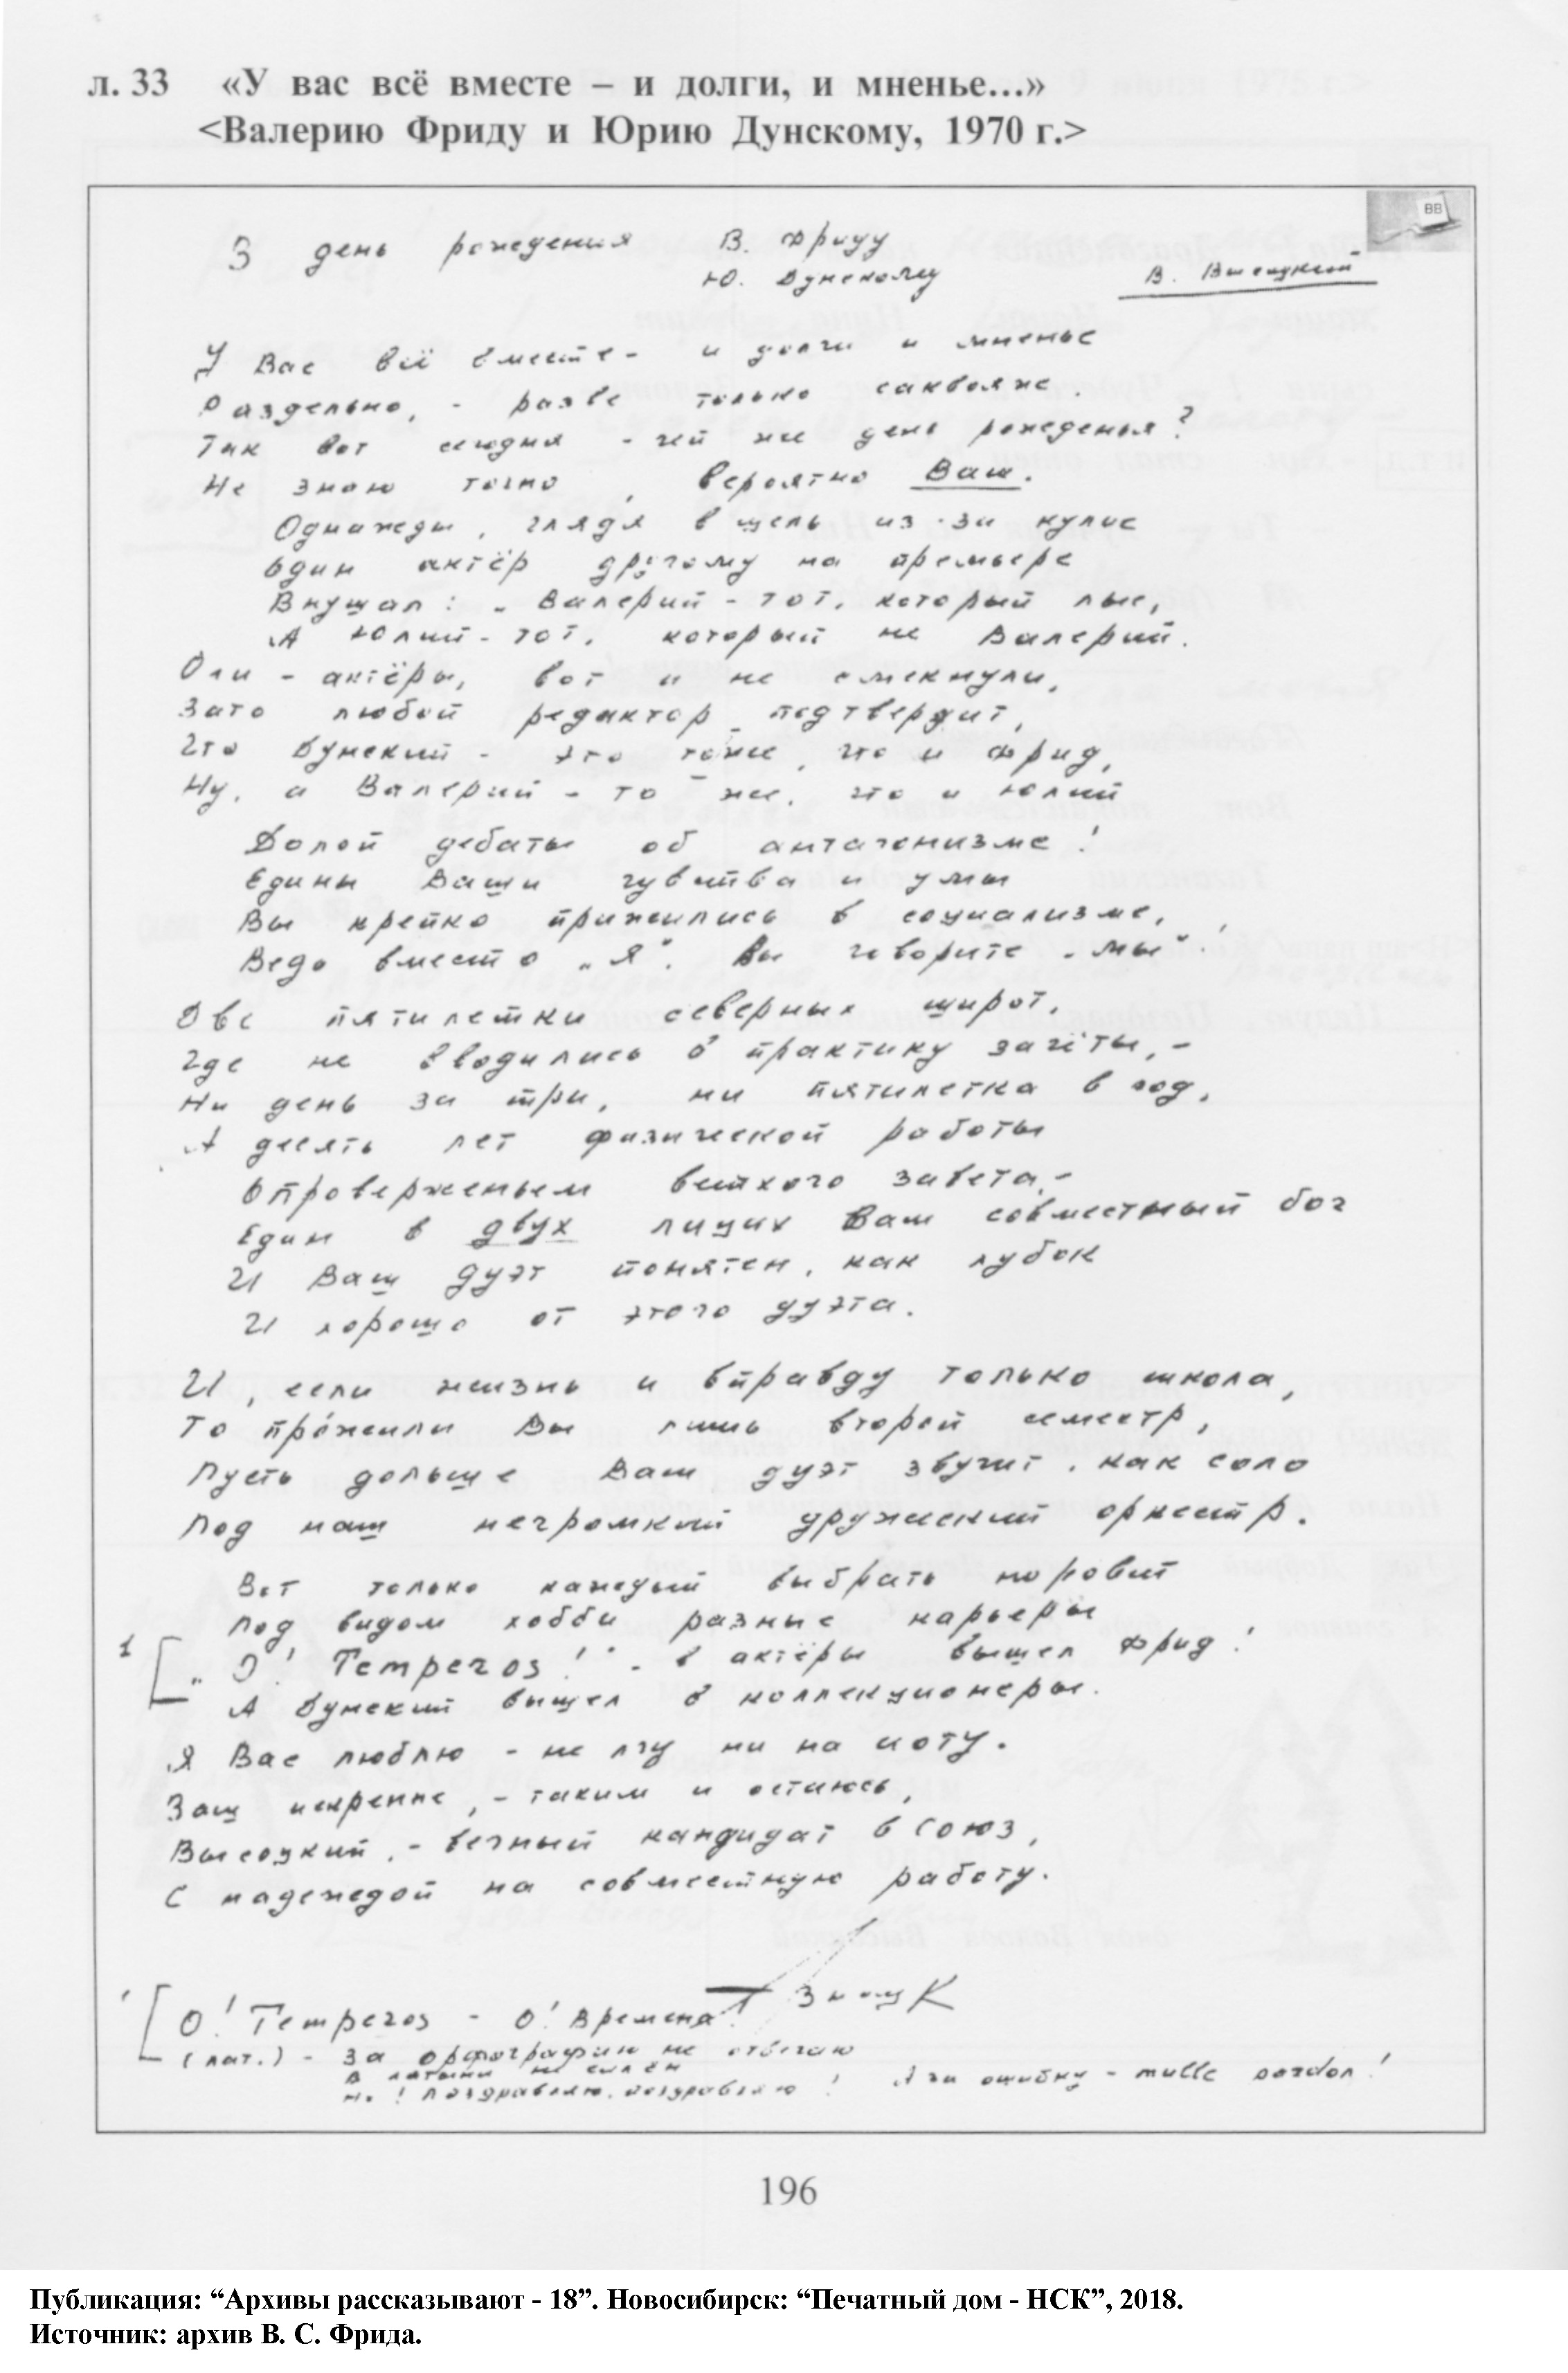 л. 33 «У вас всё вместе – и долги, и мненье...»
<Валерию Фриду и Юрию Дунскому, 1970 г.>
ВВ
В день рождения В. Фриду
Ю. Дунскому
В. Высоцкий
У Вас всё вместе - и долги и мненье
Раздельно, - разве только саквояж.
Так вот сегодня - чей же день рожденья?
Не знаю точно, вероятно Ваш.
Однажды, глядя в щель из-за кулис
Один актёр другому на премьере
Внушал: „Валерий - тот, который лыс,
А Юлий - тот, который не Валерий.
Они - актёры, вот и не смекнули,
Зато любой редактор подтвердит,
Что Дунский - это тоже, что и Фрид,
Ну, а Валерий - то же, что и Юлий
Долой дебаты об антагонизме!
Едины Ваши чувства и умы
Вы крепко прижились в социализме,
Ведь вместо „Я". Вы говорите „мы"!
Две пятилетки северных широт,
Где не вводились в практику зачёты, -
Ни день за три, ни пятилетка в год,
А десять лет физической работы
Опроверженьем ветхого завета, -
Един в двух лицах Ваш совместный бог
И Ваш дуэт понятен, как лубок
И хорошо от этого дуэта.
И, если жизнь и вправду только школа,
То прожили Вы лишь второй семестр,
Пусть дольше Ваш дуэт звучит, как соло
Под наш негромкий дружеский оркестр.
Вот только каждый выбрать норовит
Под видом хобби разные карьеры
1 [ „О! Temperos!" - в актёры вышел Фрид!
А Дунский вышел в коллекционеры.
Я Вас люблю - не лгу ни на йоту.
Ваш искренне, - таким и остаюсь,
Высоцкий, - вечный кандидат в Союз,
С надеждой на совместную работу.
' [ О! Temperos - О! Времена!
(лат.) - За орфографию не отвечаю
В латыни не силён
Но! Поздравляю, поздравляю! А за ошибку - mulle pardon!
196
Публикация: “Архивы рассказывают - 18”. Новосибирск: “Печатный дом - НСК”, 2018.
Источник: архив В. С. Фрида.